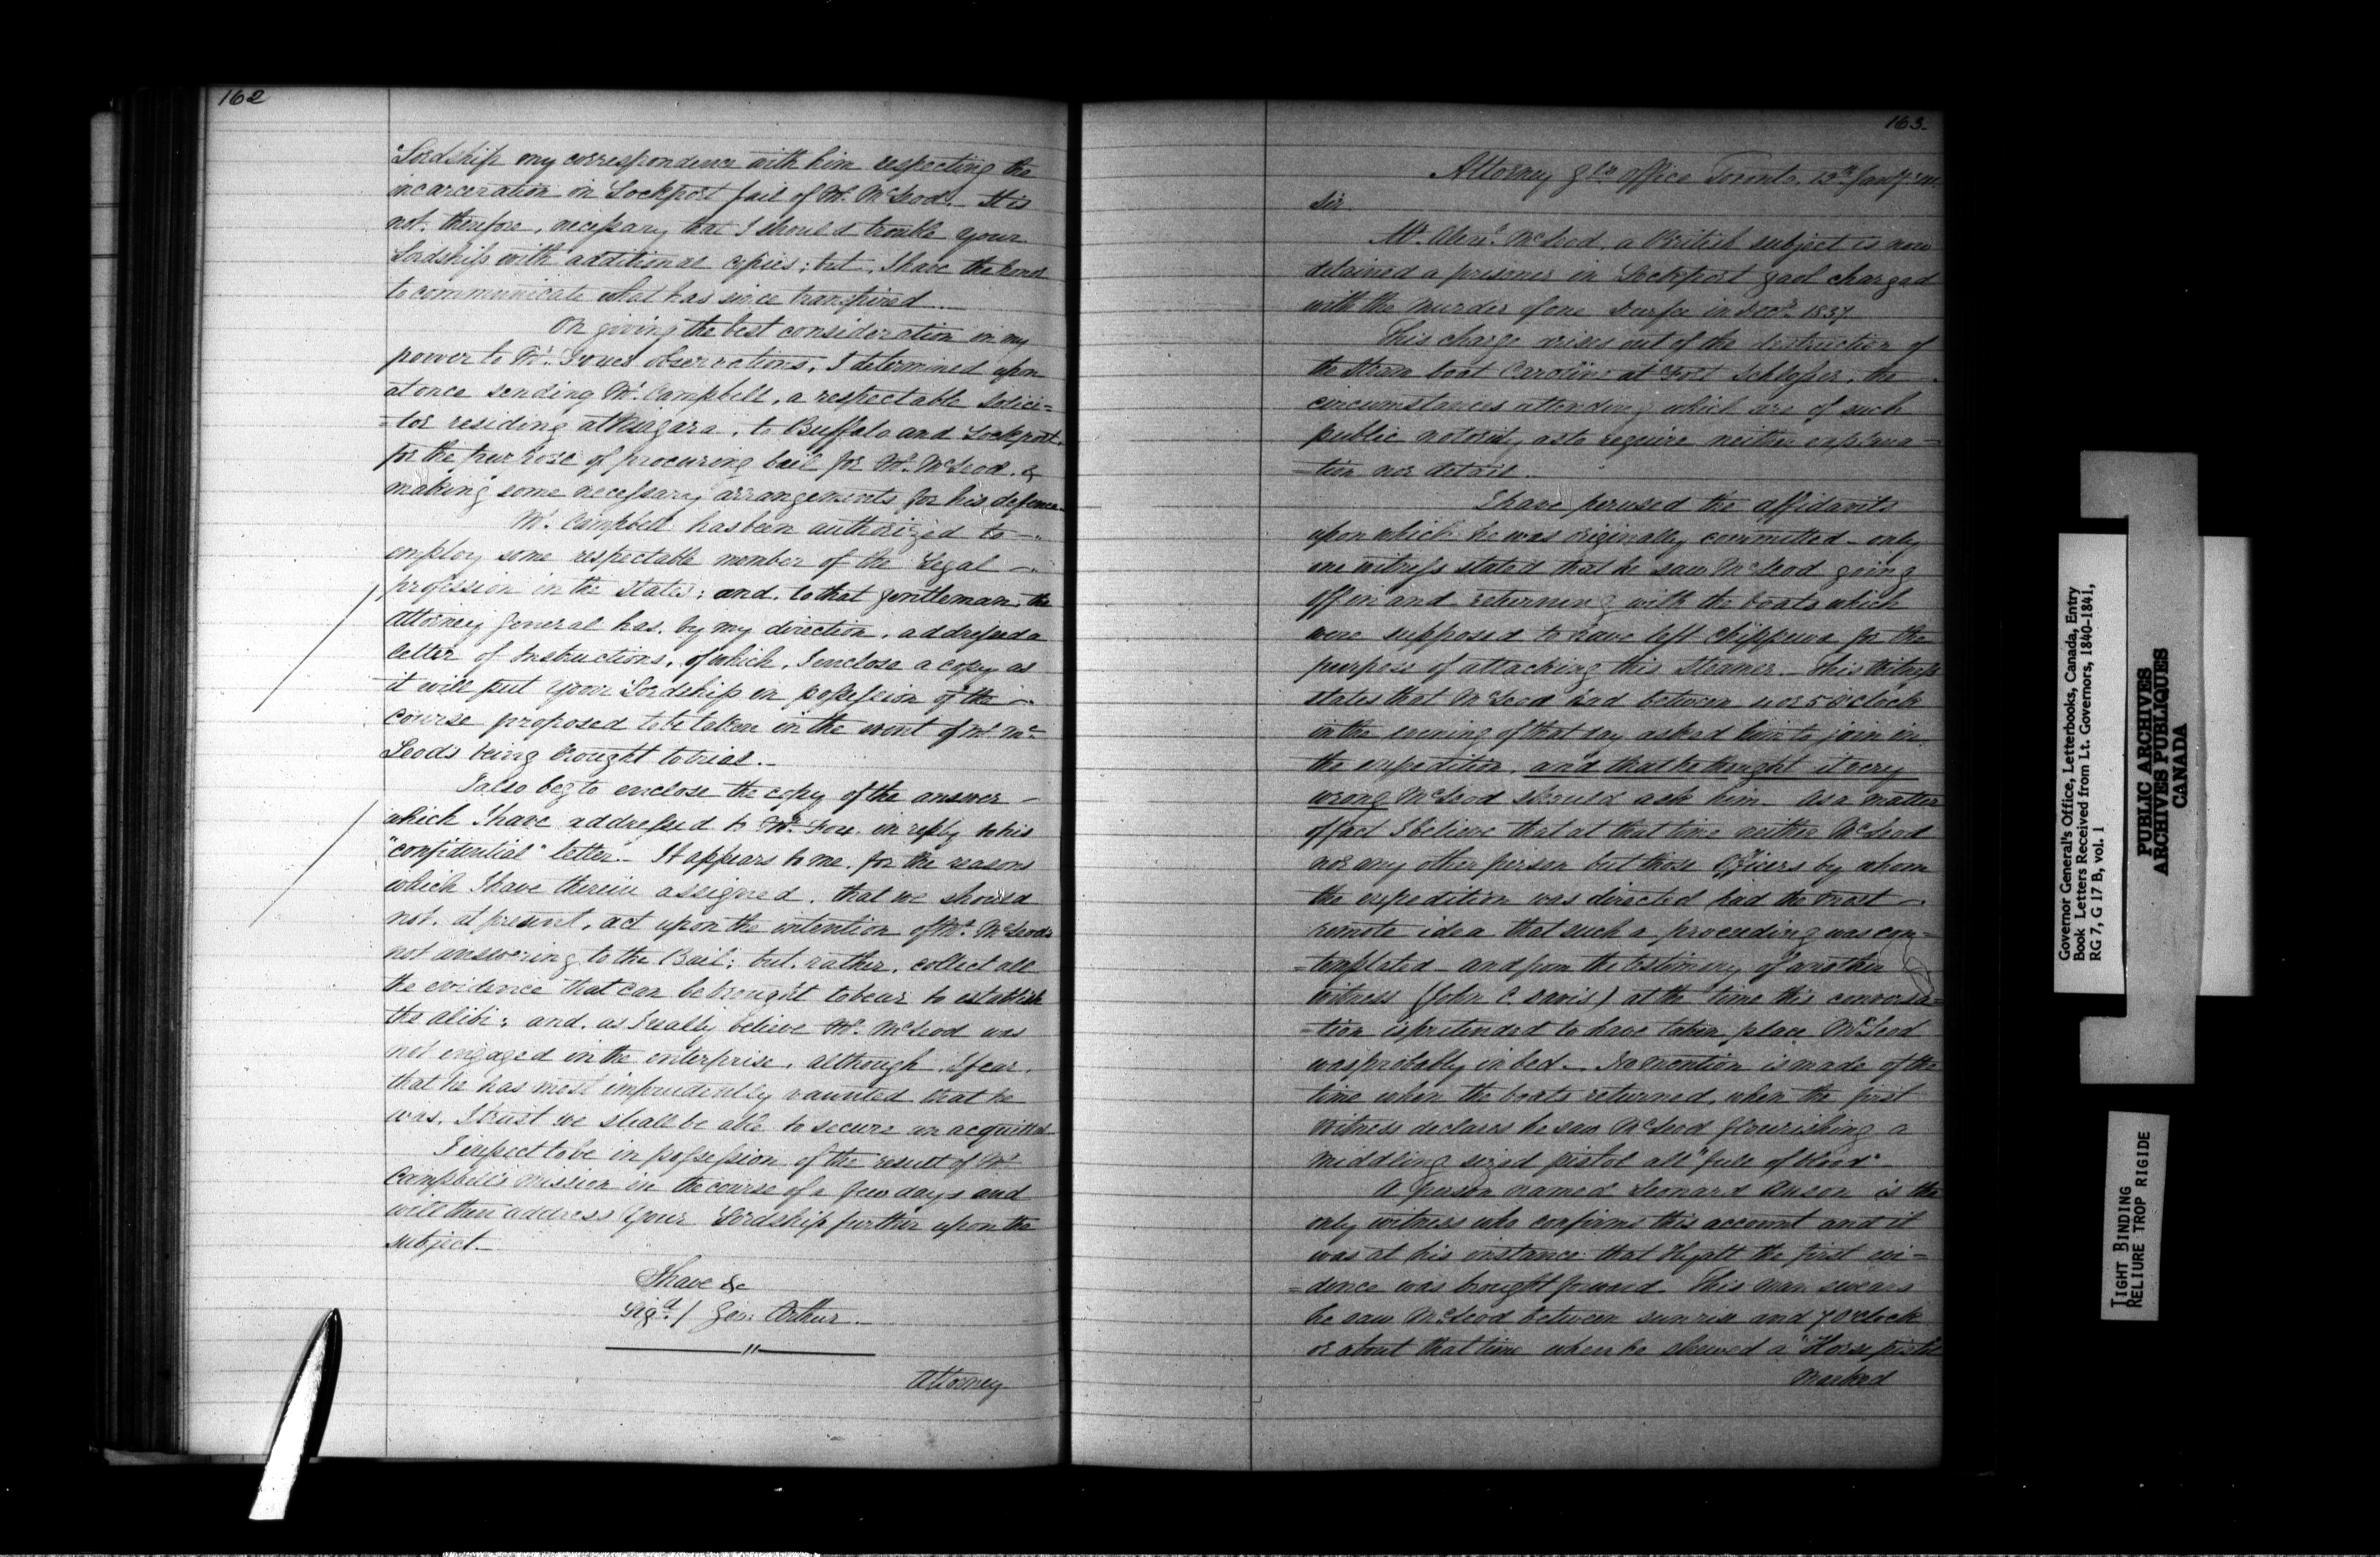 162
Lordship my correspondence with him respecting the
incarceration in Lockport Jail of Mr. McLeod. It is
not, therefore, necessary that I should trouble your
Lordship with additional copies; but, I have the honor
to communicate what has since transpired
On giving the best consideration in my
power to Mr. Fox's observations, I determined upon
at once sending Mr. Campbell, a respectable Solici=
=tor residing at Niagara, to Buffalo and Lockport
for the purpose of procuring bail for Mr. McLeod, &
making some necessary arrangements for his defence.
Mr. Campbell has been authorized to
employ some respectable member of the Legal
profession in the States; and, to that gentleman, the
Attorney General has, by my direction, addressed a
letter of Instructions, of which, I enclose a copy as
it will put your Lordship in possession of the
course proposed to be taken in the event of Mr. Mc
Leods being brought to trial.
I also beg to enclose the copy of the answer
which I have addressed to Mr. Fox in reply to his
"confidential" letter. It appears to me, for the reasons
which I have therein assigned, that we should
not, at present, act upon the intention of Mr. McLeod's
not answering to the Bail; but, rather, collect all
the evidence that can be brought to bear to establish
the alibi; and, as I really believe Mr. McLeod was
not engaged in the enterprise, although, I fear,
that he has most imprudently vaunted that he
was, I trust we shall be able to secure an acquittal
I expect to be in possession of the result of Mr.
Campbell's mission in the course of a few days and
will then address your Lordship further upon the
subject.
I have &c
Sigd. / Geo: Arthur
Attorney
163.
Attorney Gls. Office Toronto, Jany.
Sir
Mr. Alexr. McLeod, a British subject is now
detained a prisoner in Lockport gaol charged
with the murder of one Durfee in Decr. 1837
This charge arises out of the destruction of
the Steam boat Caroline at Fort Schlosser, the
circumstances attending which are of such
public notority as to require neither explana=
=tion nor detail.
I have perused the affidavits
upon which he was originally committed – only
one witness stated that he saw McLeod going
off in and returning with the boats which
were supposed to have left Chippewa for the
purpose of attacking this Steamer. This Witness
states that McLeod had between 4 or 5 O'clock
in the evening of that day asked him to join in
the expedition, and that he thought it very
wrong McLeod should ask him. As a matter
of fact I believe that at that time neither McLeod
nor any other person but those Officers by whom
the expedition was directed had the most
remote idea that such a proceeding was con=
=templated – and from the testimony of another
witness (John C Davis) at the time this conversa=
=tion is pretended to have taken place McLeod
was probably in bed. No mention is made of the
time when the boats returned, when the first
Witness declares he saw McLeod flourishing a
middling sized pistol all "full of blood".
A person named Leonard Anson is the
only witness who confirms this account and it
was at his instance that Hyatt the first evi=
=dence was brought forward. This man swears
he saw McLeod between sunrise and 7 O'clock
or about that time when he shewed a "Horse pistol
Marked
Governor General's Office, Letterbooks, Canada, Entry
Book Letters Received from Lt. Governors, 1840-1841,
RG 7, G 17 B, vol. 1
PUBLIC ARCHIVES
ARCHIVES PUBLIQUES
CANADA
TIGHT BINDING
RELIURE TROP RIGIDE